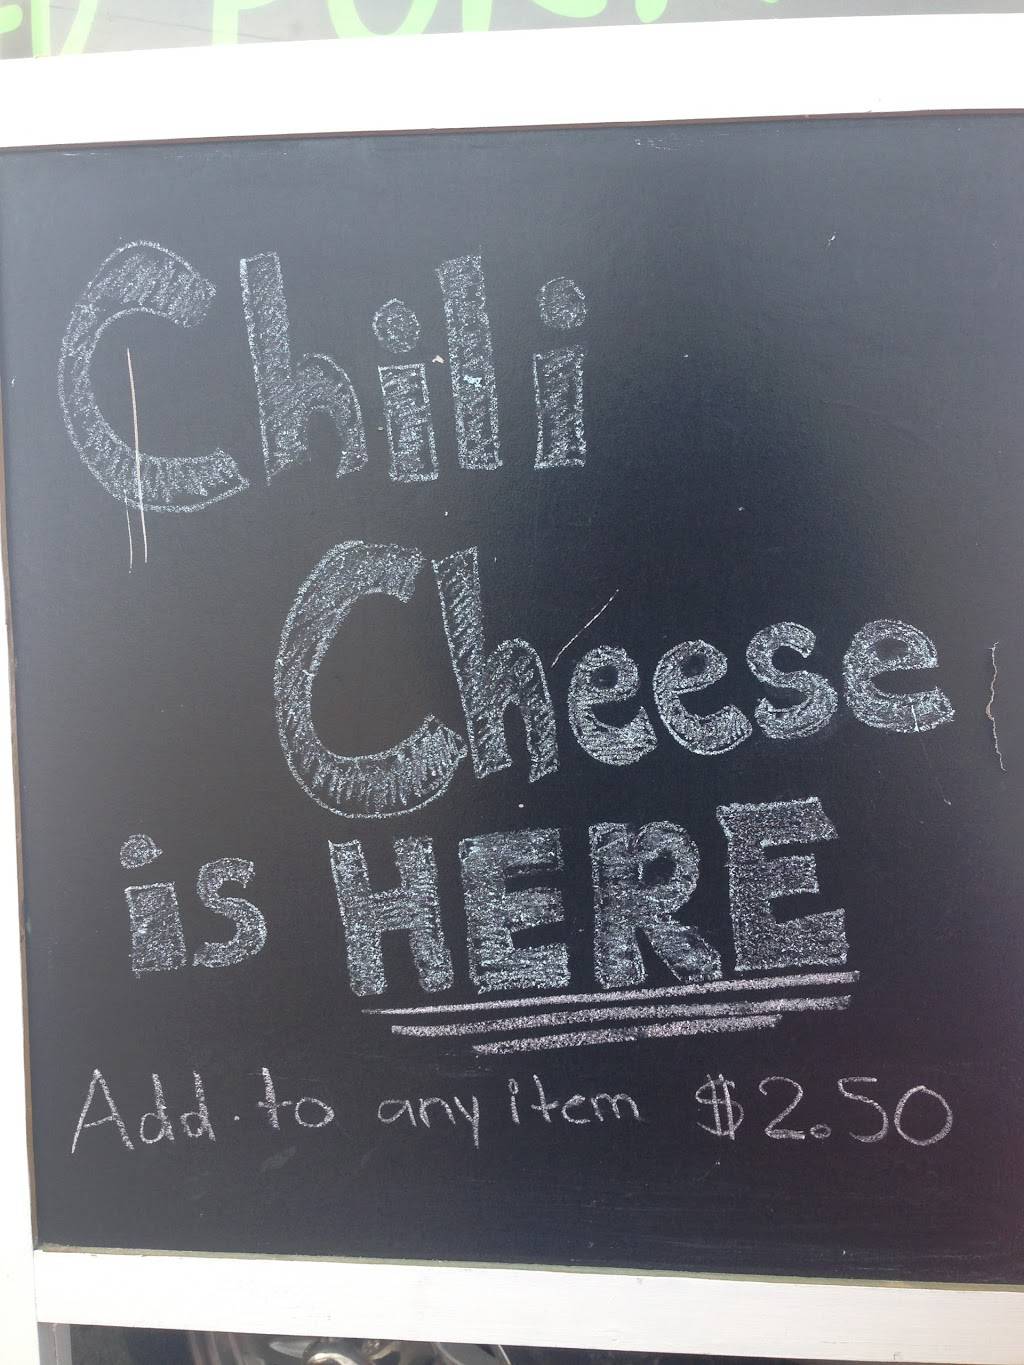 Chili
Cheese
is HERE
Add to any item $2.50